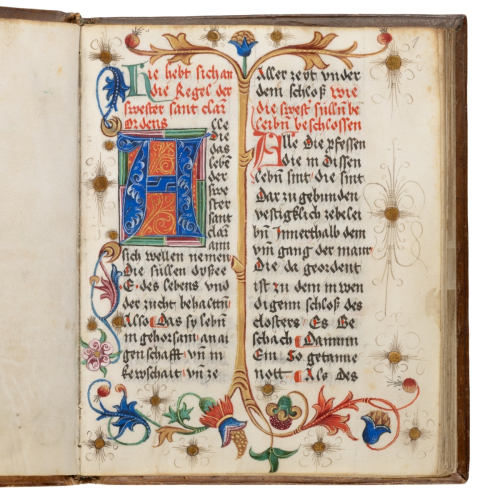 Hie hebt sich an
die Regel der
swester sant clarn
Ordens
Alle
die
das
lebñ
der
swe
ster
sant
clarn
am
sich wellen nemen
Die süllen dyse
des lebens vnd
der zucht behaltñ
Also Das sy lebñ
in gehorsam an ai
genschafft vñ in
kewschait vñ ze
Aller zeyt vnder
dem schloß wie
die swest süllñ be
leibñ beschlossen
Alle Die
die in dissen
lebñ sint die sint
Dar zu gebunden
vestigklich ze belei
bñ Innerthalb dem
vm gang der maur
Die da geordent
ist zu dem in wen
digenn schloß des
closters Es Ge
schach Dannn
Ein So getanne
nott Als des